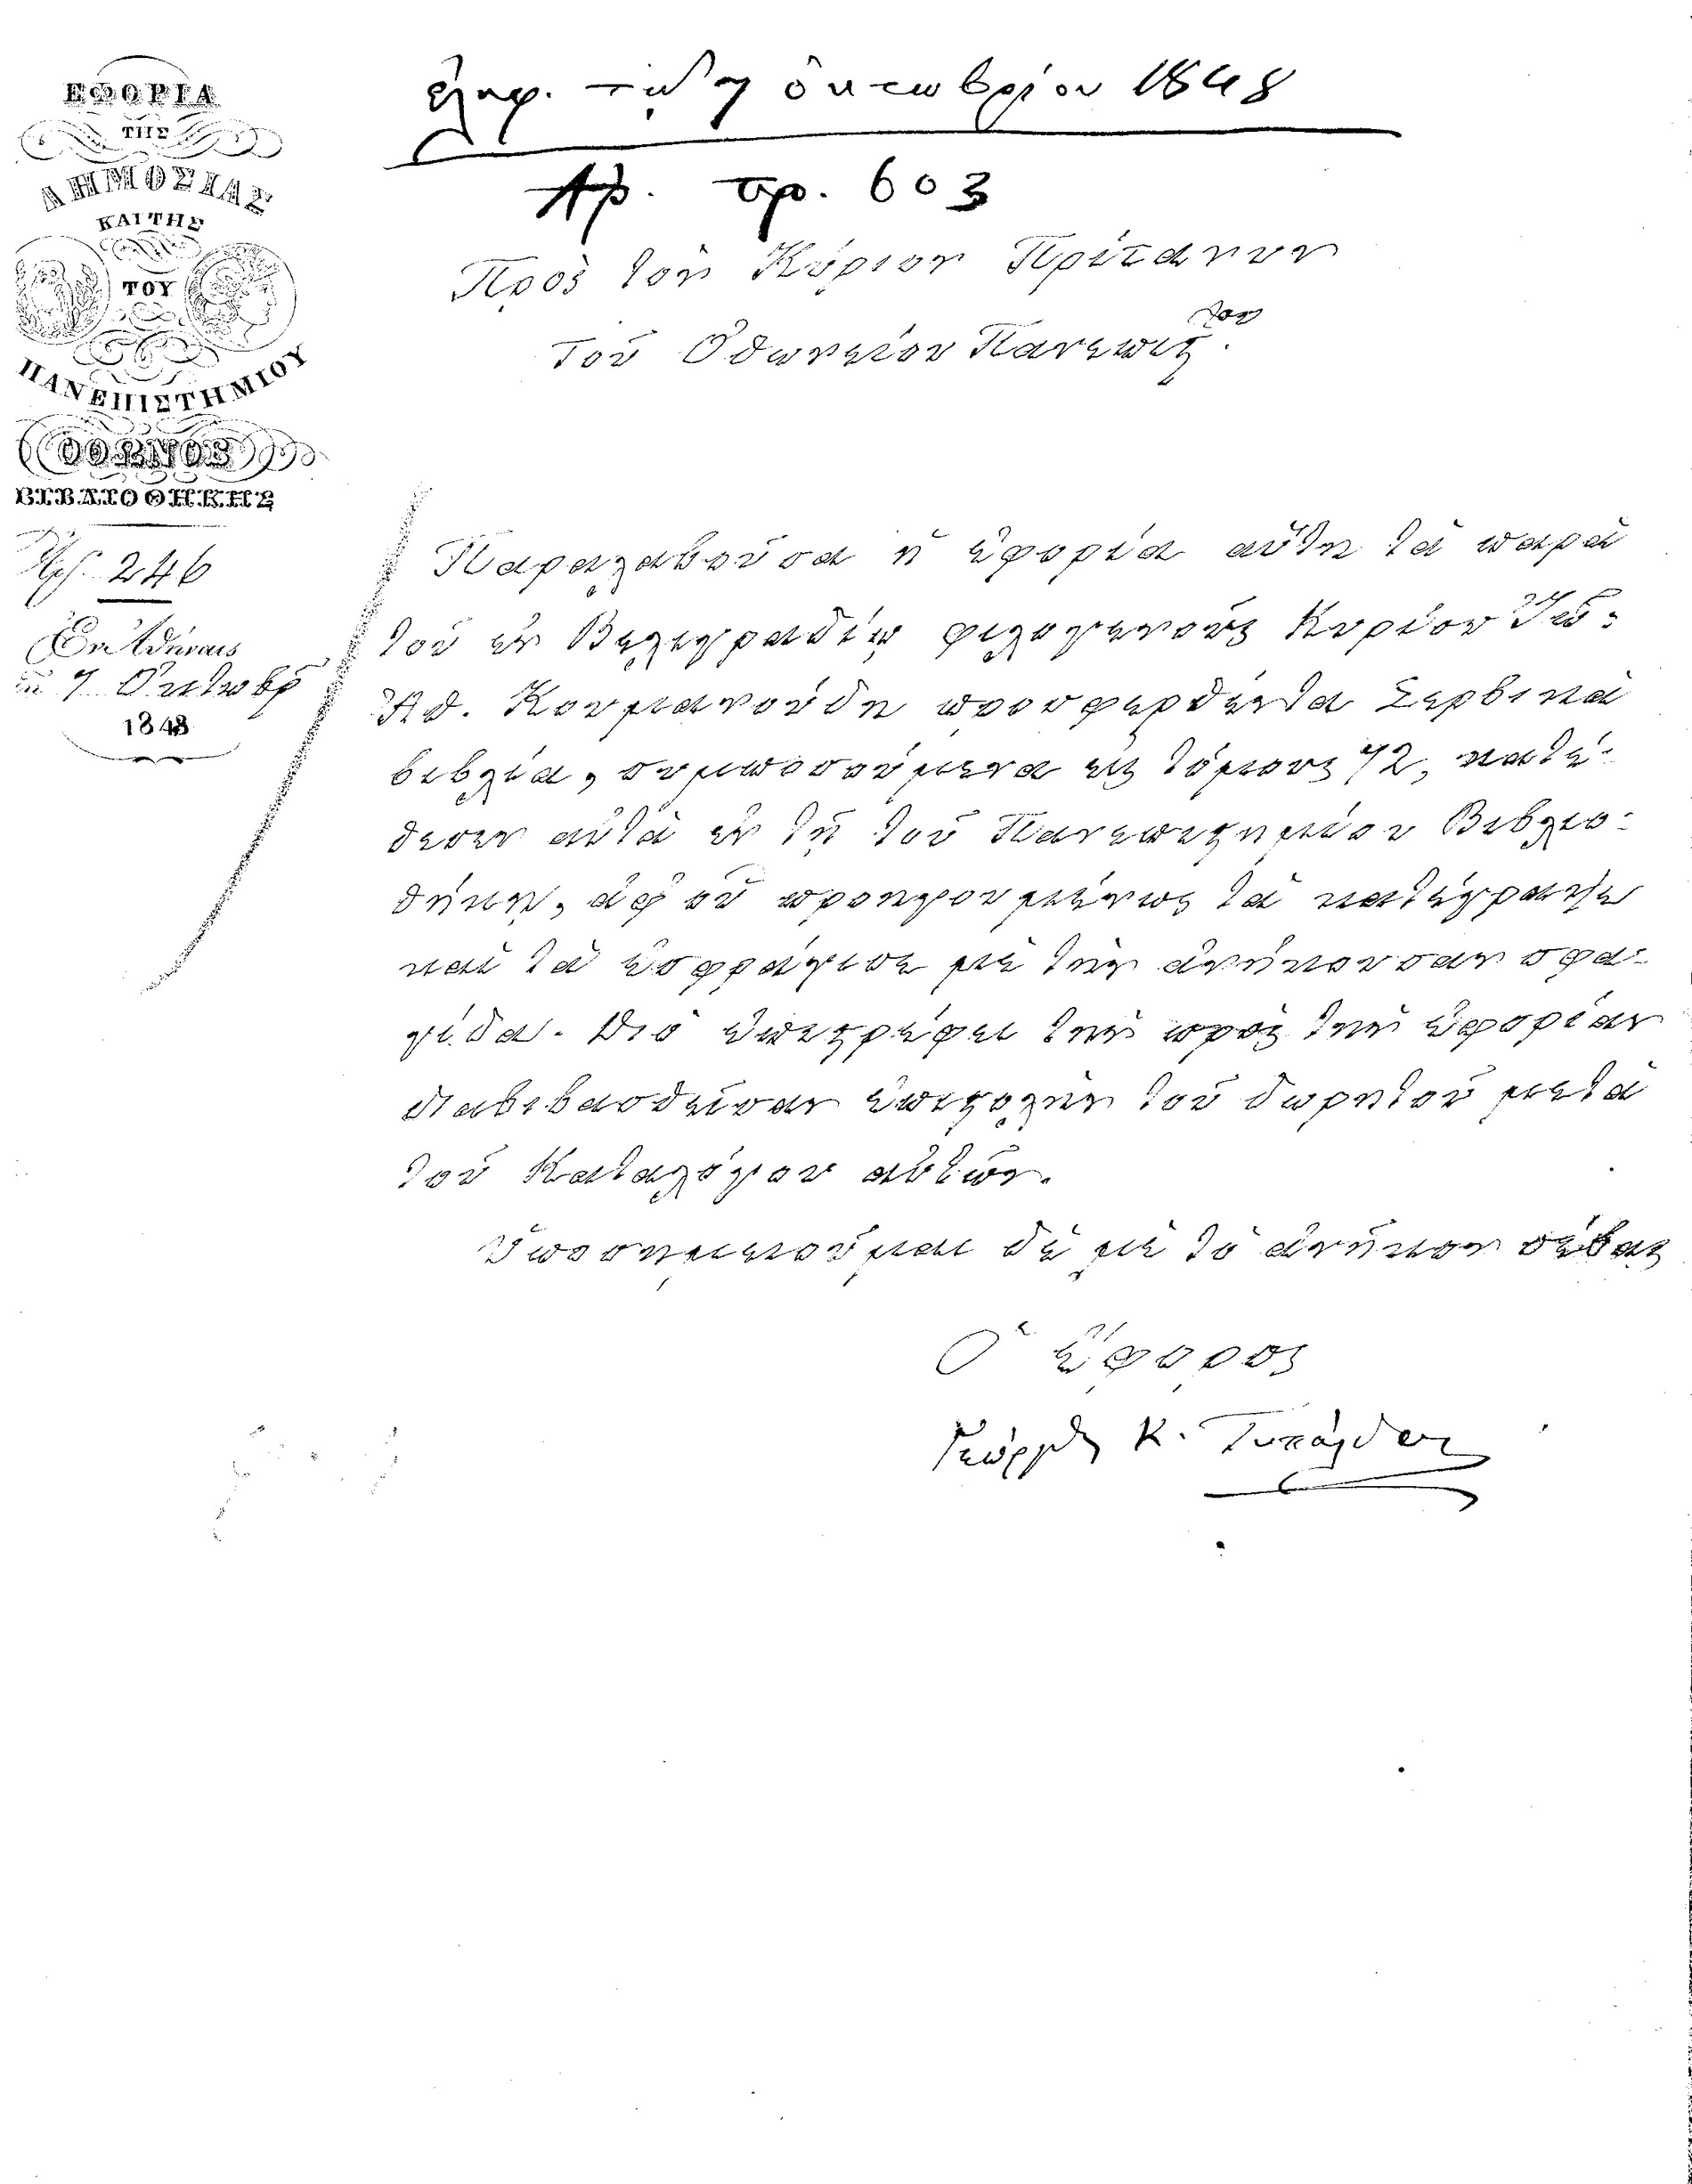 ΕΦΟΡΙΑ
ΤΗΣ
ΔΗΜΟΣΙΑΣ
ΚΑΙ ΤΗΣ
ΤΟΥ
ΠΑΝΕΠΙΣΤΗΜΙΟΥ
ΟΘΩΝΟΣ
ΒΙΒΛΙΟΘΗΚΗΣ
Ἀρ. 246
Ἐν Ἀθήναις
τῇ 7 Ὀκτωβρ
1848
ἐλήφ. τῇ 7 ὀκτωβρίου 1848
Ἀρ. πρ. 603
Πρὸς τὸν Κύριον Πρύτανιν
τοῦ Ὀθωνείου Πανεπιϛ.
Παραλαβοῦσα ἡ ἐφορία αὕτη τὰ παρὰ
τοῦ ἐν Βελιγραδίῳ φιλογενοῦς Κυρίου Ἰω:
Ἀθ. Κουμανούδη προσφερθέντα Σερβικὰ
βιβλία, συμποσούμενα εἰς τόμους 72, κατέ:
θεσεν αὐτὰ ἐν τῇ τοῦ Πανεπιϛημίου Βιβλιο:
θήκῃ, ἀφ οὗ προηγουμένως τὰ κατέγραψε
καὶ τὰ ἐσφράγισε μὲ τὴν ἀνήκουσαν σφρα:
γίδα. Διὸ ἐπιϛρέφει τὴν πρὸς τὴν ἐφορίαν
διαβιβασθεῖσαν ἐπιϛολὴν τοῦ δωρητοῦ μετὰ
τοῦ Καταλόγου αὐτῶν.
Ὑποσημειοῦμαι δὲ μὲ τὸ ἀνῆκον σέβας
Ὁ ἔφορος
Γεώργιος Κ. Τυπάλδος